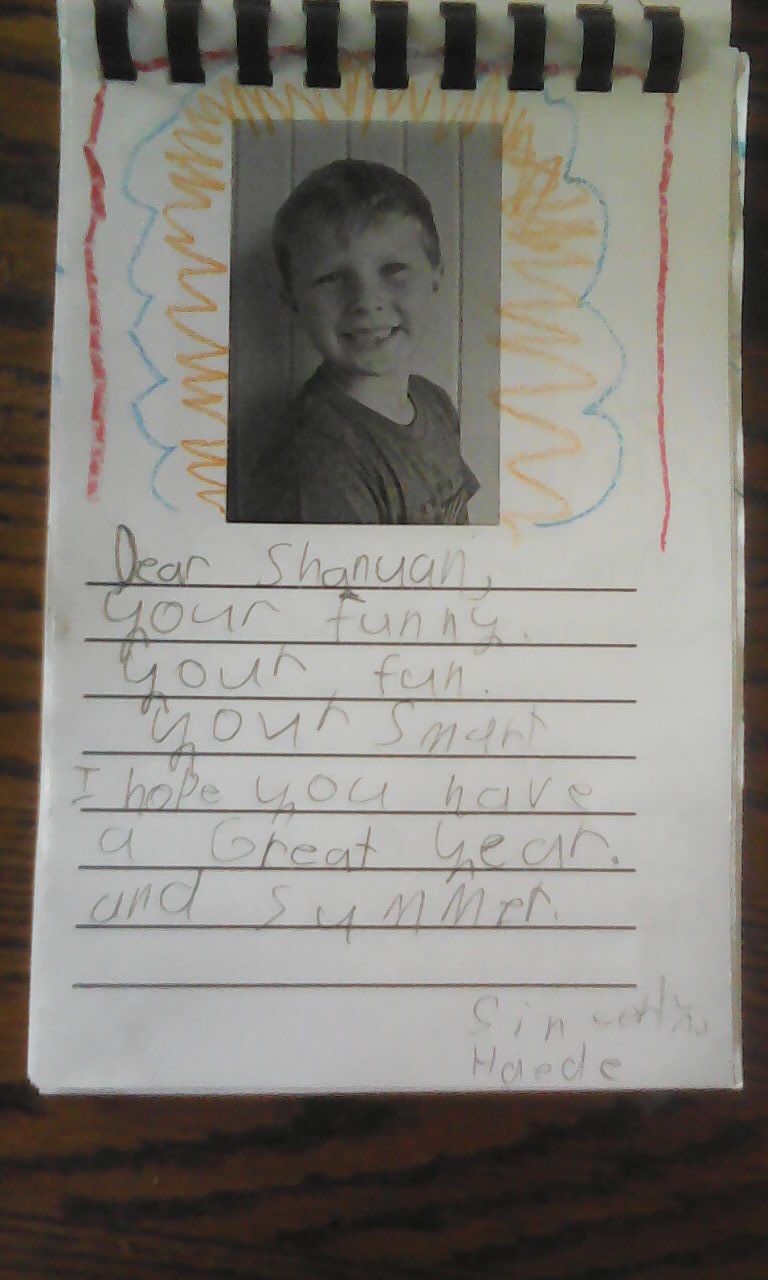 Dear Shanuan,
your funny.
your fun.
your Smart
I hope you have
a Great year.
and summer.
Haede